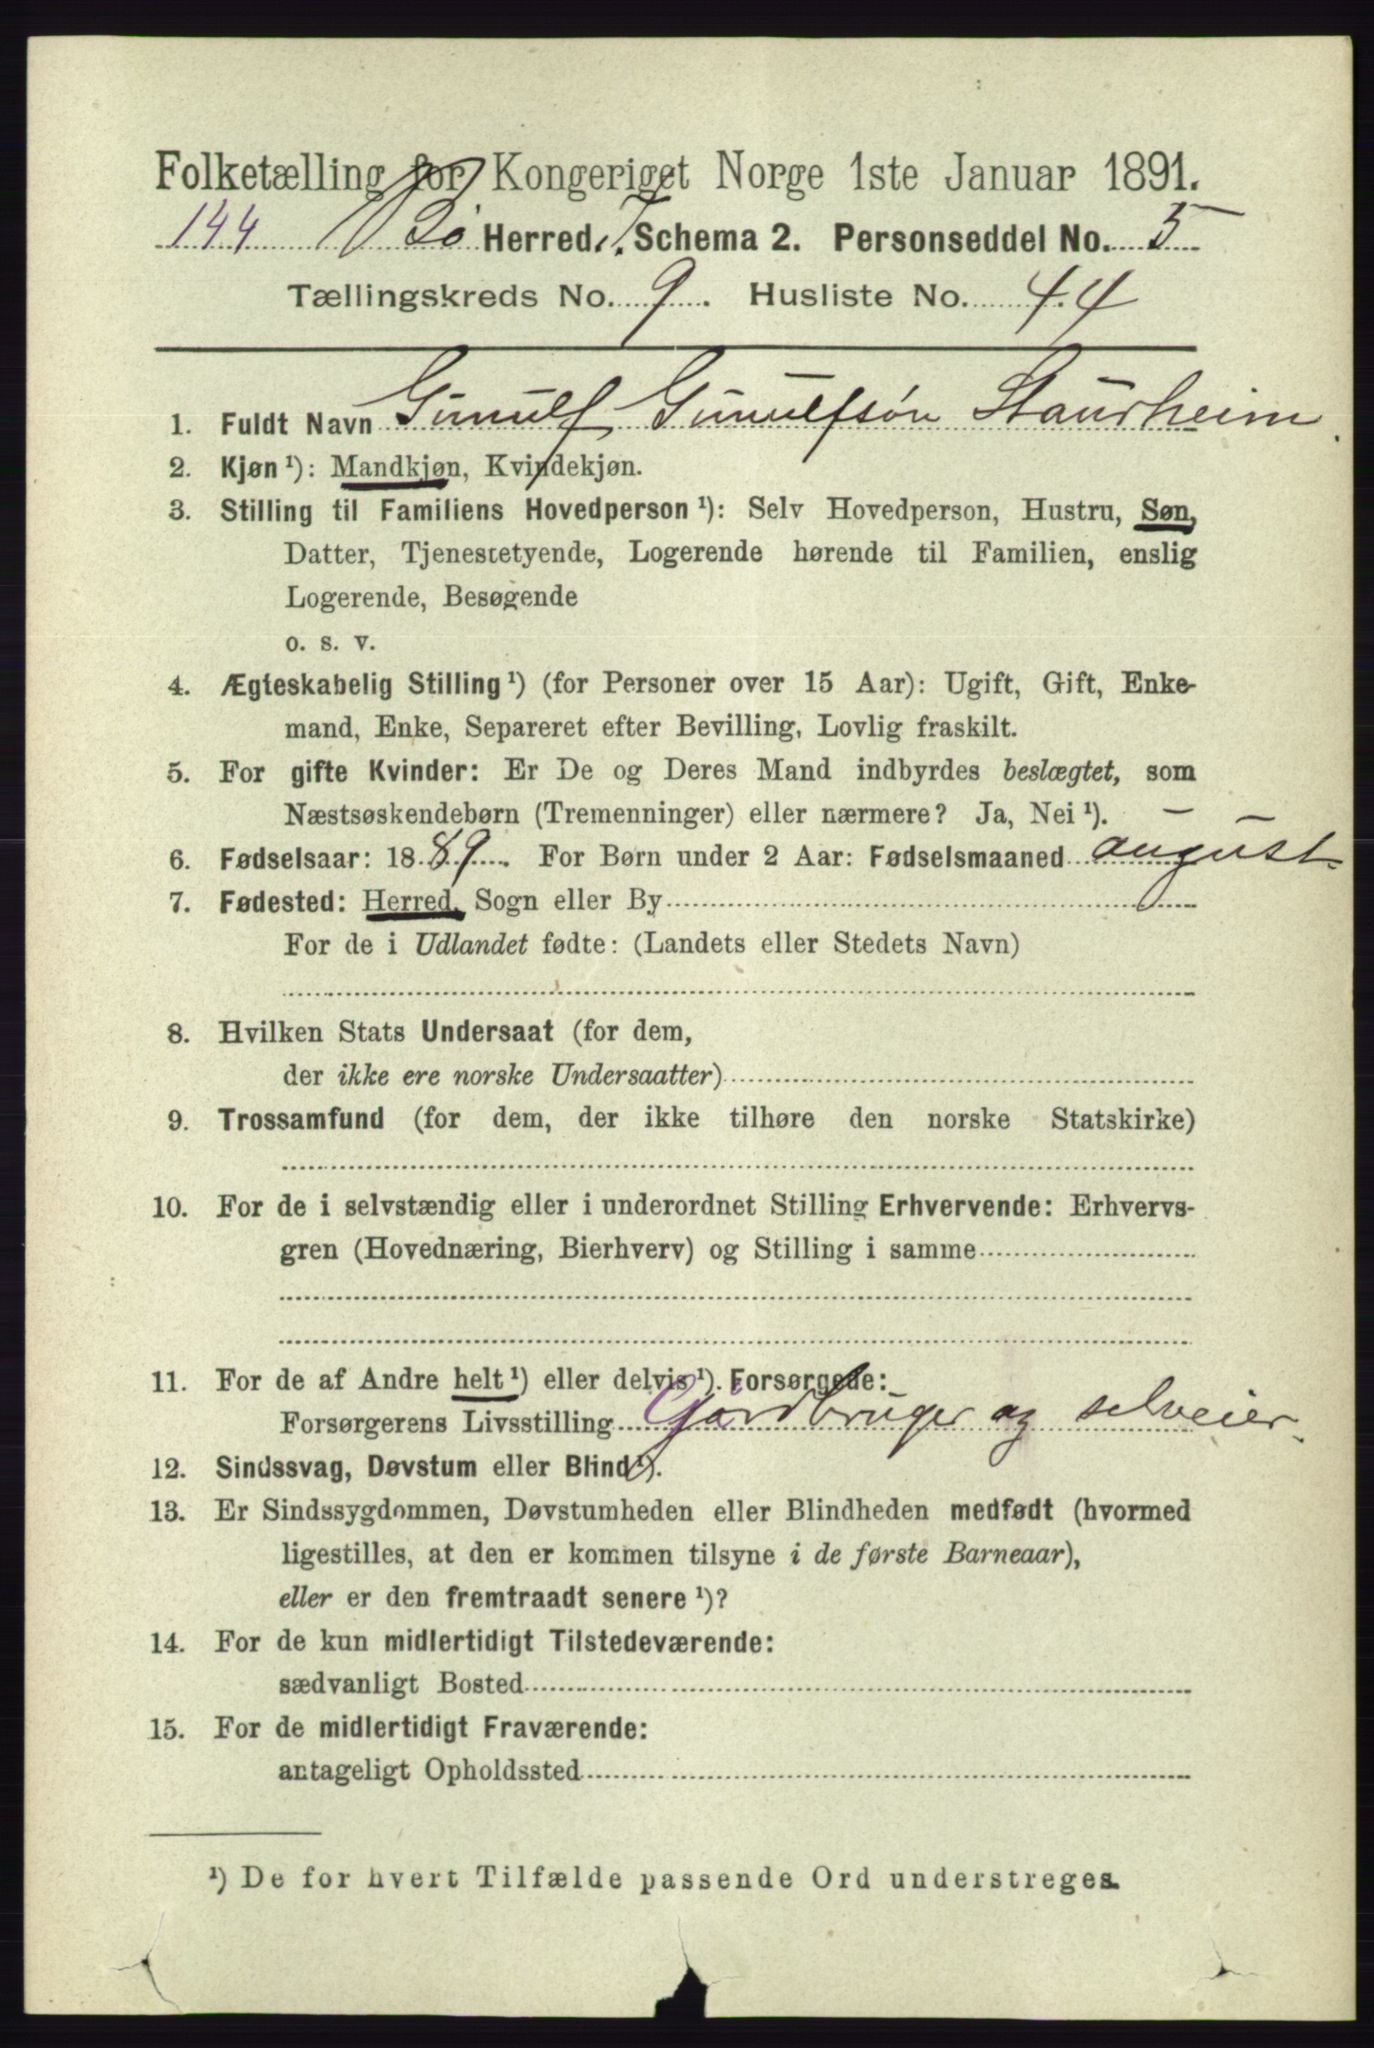 Folketælling for Kongeriget Norge 1ste Januar 1891.
144 Bø Herred. Schema 2. Personseddel No. 5
Tællingskreds No. 9. Husliste No. 44
1. Fuldt Navn Gunulf Gunulfsøn Staurheim.
2. Kjøn ¹): Mandkjøn, Kvindekjøn.
3. Stilling til Familiens Hovedperson ¹): Selv Hovedperson, Hustru, Søn,
Datter, Tjenestetyende, Logerende hørende til Familien, enslig
Logerende, Besøgende
o. s. v.
4. Ægteskabelig Stilling ¹) (for Personer over 15 Aar): Ugift, Gift, Enke-
mand, Enke, Separeret efter Bevilling, Lovlig fraskilt.
5. For gifte Kvinder: Er De og Deres Mand indbyrdes beslægtet, som
Næstsøskendebørn (Tremenninger) eller nærmere? Ja, Nei ¹).
6. Fødselsaar: 1889. For Børn under 2 Aar: Fødselsmaaned august
7. Fødested: Herred, Sogn eller By
For de i Udlandet fødte: (Landets eller Stedets Navn)
8. Hvilken Stats Undersaat (for dem,
der ikke ere norske Undersaatter)
9. Trossamfund (for dem, der ikke tilhøre den norske Statskirke)
10. For de i selvstændig eller i underordnet Stilling Erhvervende: Erhvervs-
gren (Hovednæring, Bierhverv) og Stilling i samme
11. For de af Andre helt ¹) eller delvis ¹). Forsørgede:
Forsørgerens Livsstilling Gårdbruger og selveier.
12. Sindssvag, Døvstum eller Blind ¹).
13. Er Sindssygdommen, Døvstumheden eller Blindheden medfødt (hvormed
ligestilles, at den er kommen tilsyne i de første Barneaar),
eller er den fremtraadt senere ¹)?
14. For de kun midlertidigt Tilstedeværende:
sædvanligt Bosted
15. For de midlertidigt Fraværende:
antageligt Opholdssted
¹) De for hvert Tilfælde passende Ord understreges.